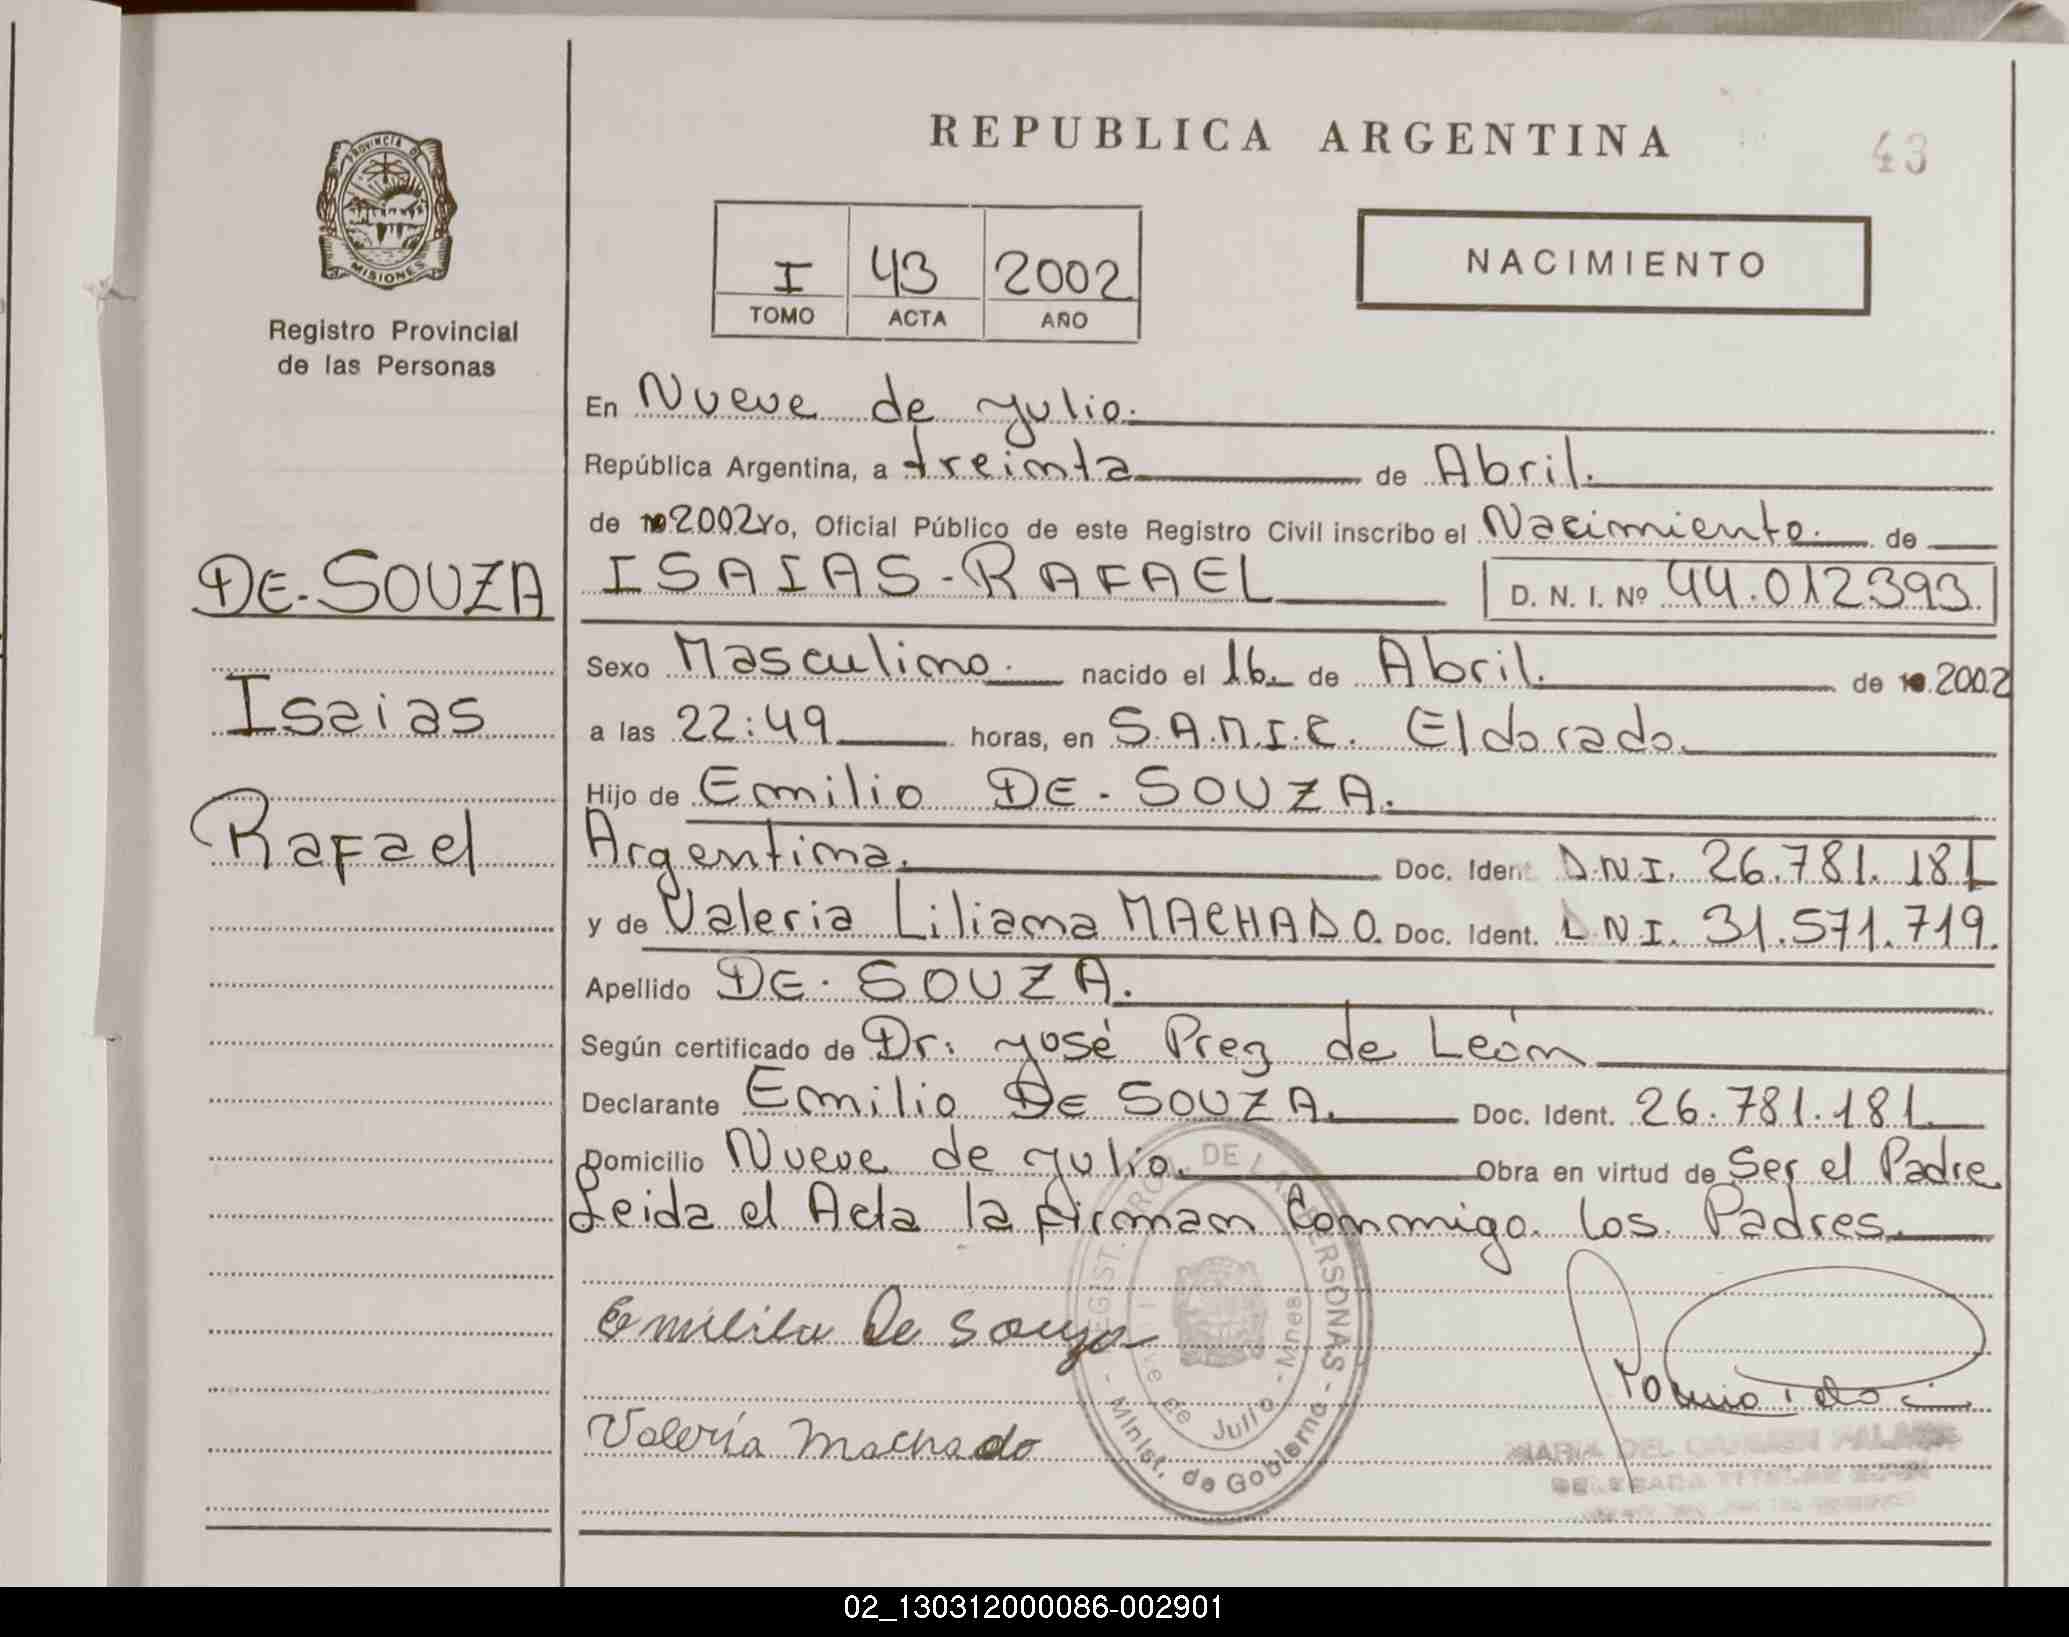 REPUBLICA ARGENTINA
43
PROVINCIA DE
MISIONES
Registro Provincial
de las Personas
I 43 2002
TOMO ACTA AÑO
NACIMIENTO
En Nueve de Julio.
República Argentina, a treinta de Abril.
de 19 2002 Yo, Oficial Público de este Registro Civil inscribo el Nacimiento. de
DE-SOUZA
Isaias
Rafael
ISAIAS-RAFAEL D. N. I. Nº 44.012393.
Sexo Masculino. nacido el 16 de Abril. de 19 2002
a las 22:49 horas, en S.A.M.I.C. Eldorado.
Hijo de Emilio DE-SOUZA.
Argentina. Doc. Ident D.N.I. 26.781.181
y de Valeria Liliana MACHADO. Doc. Ident. D.N.I. 31.571.719.
Apellido DE-SOUZA.
Según certificado de Dr: José Prez de León
Declarante Emilio DE SOUZA. Doc. Ident. 26.781.181
Domicilio Nueve de Julio. Obra en virtud de Ser el Padre
Leida el Acta la firman Conmigo los Padres.
Emililu De Souza
Valería Machado
REGIST. PROV. DE LAS PERSONAS
- Minist. de Gobierno -
de Julio - Mnes
MARIA DEL CARMEN
DELEGADA TITULAR
02_130312000086-002901